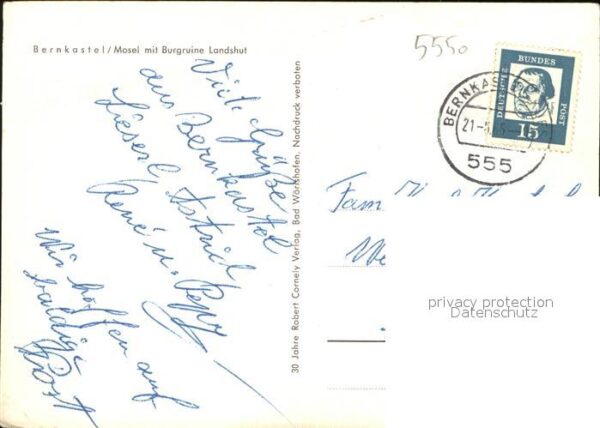 Bernkastel/Mosel mit Burgruine Landshut
5550
BERNKASTEL
21-
555
DEUTSCHE BUNDES POST
15
30 Jahre Robert Cornely Verlag, Bad Wörishofen, Nachdruck verboten
Viele Grüße
aus Bernkastel
Liesel, Astrid
René u. Peppy
Wir hoffen auf
baldige
Fam
We
privacy protection
Datenschutz